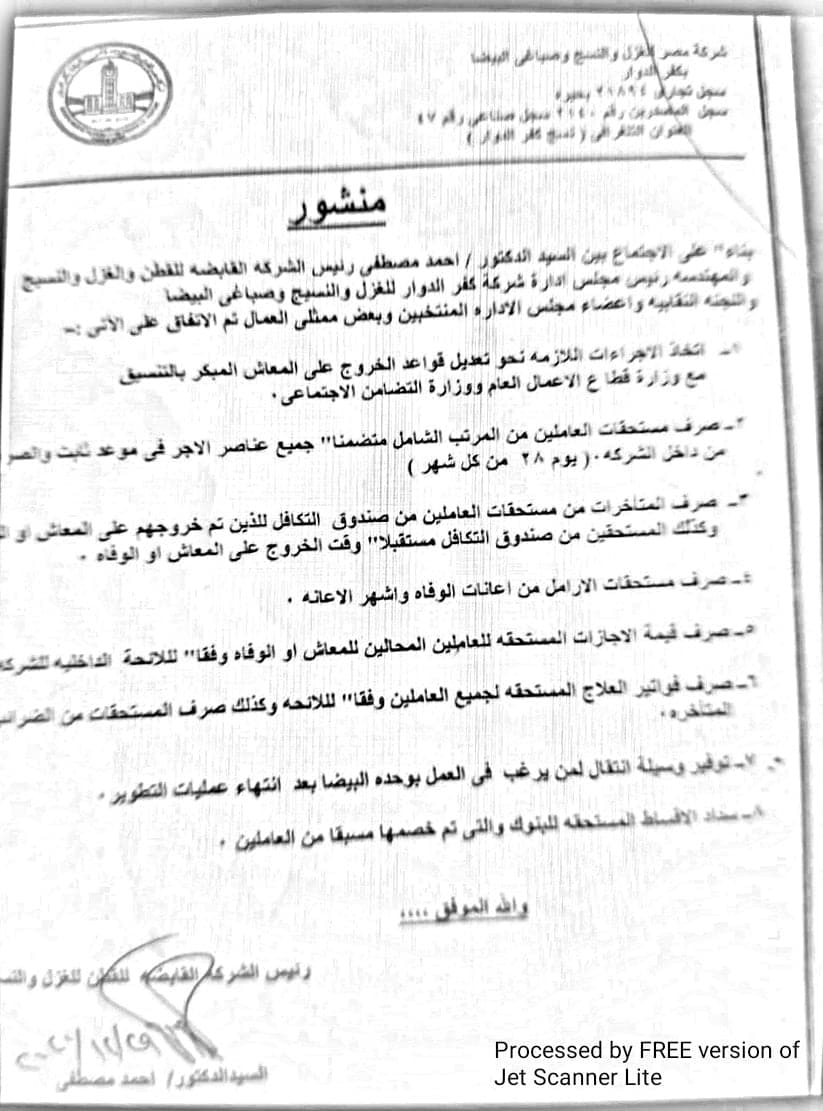 شركة مصر للغزل والنسيج وصباغى البيضا
بكفر الدوار
سجل تجارى ٢٠٨٩٤ بحيره
سجل المصدرين رقم ٢١٤٠ سجل صناعى رقم ٤٧
العنوان التلغرافى ( نسيج كفر الدوار )
منشور
بناء" على الاجتماع بين السيد الدكتور / احمد مصطفى رئيس الشركه القابضه للقطن والغزل والنسيج
والمهندسه رئيس مجلس ادارة شركة كفر الدوار للغزل والنسيج وصباغى البيضا
واللجنه النقابيه واعضاء مجلس الاداره المنتخبين وبعض ممثلى العمال تم الاتفاق على الآتى :-
١- اتخاذ الاجراءات اللازمه نحو تعديل قواعد الخروج على المعاش المبكر بالتنسيق
مع وزارة قطاع الاعمال العام ووزارة التضامن الاجتماعى .
٢- صرف مستحقات العاملين من المرتب الشامل متضمنا" جميع عناصر الاجر فى موعد ثابت والصر
من داخل الشركه . ( يوم ٢٨ من كل شهر )
٣- صرف المتأخرات من مستحقات العاملين من صندوق التكافل للذين تم خروجهم على المعاش او
وكذلك المستحقين من صندوق التكافل مستقبلا" وقت الخروج على المعاش او الوفاه .
٤- صرف مستحقات الارامل من اعانات الوفاه واشهر الاعانه .
٥- صرف قيمة الاجازات المستحقه للعاملين المحالين للمعاش او الوفاه وفقا" للائحة الداخليه للشركه
٦- صرف فواتير العلاج المستحقه لجميع العاملين وفقا" للائحه وكذلك صرف المستحقات من الضرائب
المتأخره .
٧- توفير وسيلة انتقال لمن يرغب فى العمل بوحده البيضا بعد انتهاء عمليات التطوير .
٨- سداد الاقساط المستحقه للبنوك والتى تم خصمها مسبقا من العاملين .
والله الموفق ،،،،
رئيس الشركه القابضه للقطن للغزل والنس
السيد الدكتور/ احمد مصطفى
Processed by FREE version of
Jet Scanner Lite